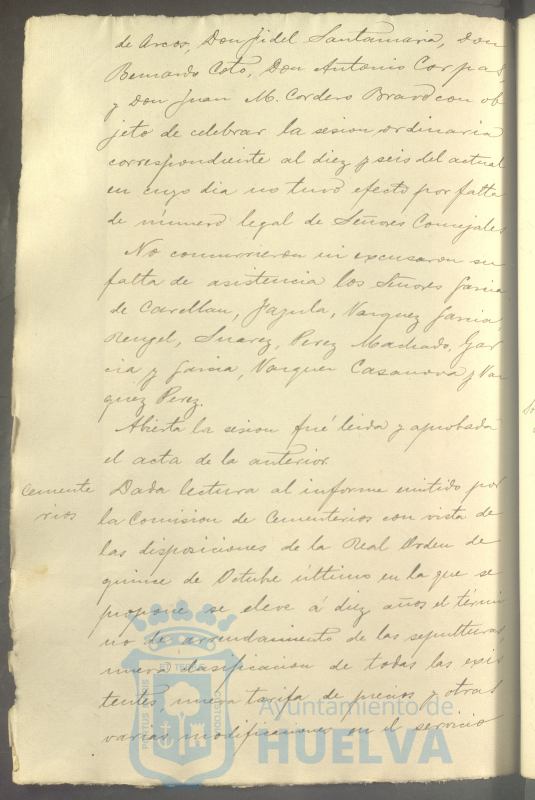 de Arcos, Don Fidel Santamaria, Don
Bernardo Coto, Don Antonio Corpas
y Don Juan M. Cordero Bravo con ob
jeto de celebrar la sesion ordinaria
correspondiente al diez y seis del actual
en cuyo dia no tuvo efecto por falta
de número legal de Señores Concejales
No concurrieron ni excusaron su
falta de asistencia los Señores Garcia
de Carellan, Jagula, Vazquez Garcia,
Rengel, Suarez, Perez Machado, Gar
cia y Garcia, Vazquez Casanova y Vaz
quez Perez.
Abierta la sesion fué leida y aprobada
el acta de la anterior.
Cemente
rios
Dada lectura al informe emitido por
la Comision de Cementerios con vista de
las disposiciones de la Real Orden de
quince de Octubre último en la que se
propone se eleve á diez años el térmi
no de arrendamiento de las sepulturas
nueva clasificacion de todas las exis
tentes, nueva tarifa de precios y otras
varias modificaciones en el servicio
Ayuntamiento de
HUELVA